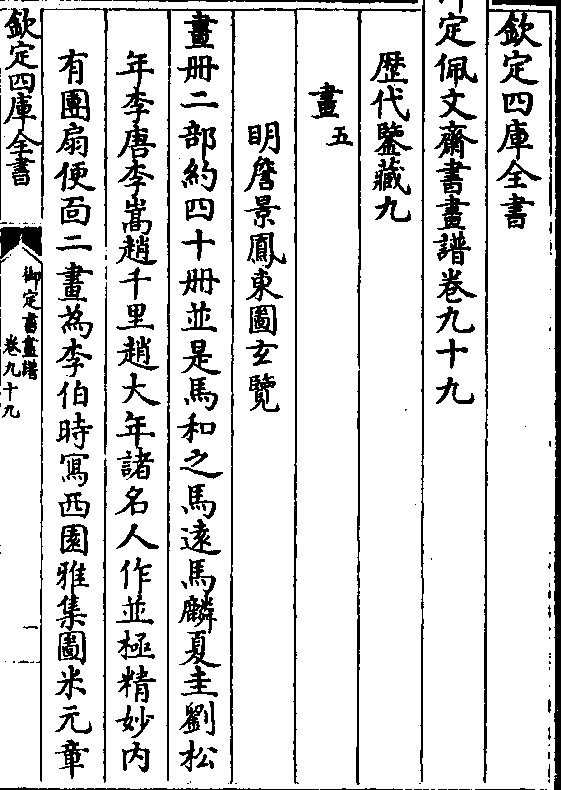 欽定四庫全書
定佩文齋書畫譜卷九十九
歴代鑒藏九
畫五
明詹景鳳東圖玄覽
畫册二部約四十册並是馬和之馬遠馬麟夏圭劉松
年李唐李嵩趙千里趙大年諸名人作並極精妙内
有團扇便面二畫為李伯時寫西園雅集圖米元章
欽定四庫全書
御定書畫譜
卷九十九
一